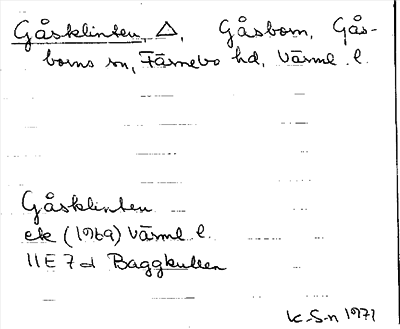 Gåsklinten, △, Gåsborn, Gås-
borns sn, Färnebo hd, Värml. l.
Gåsklinten
ek (1969) Värml l.
11E 7d Baggkullen
K.S-n 1971